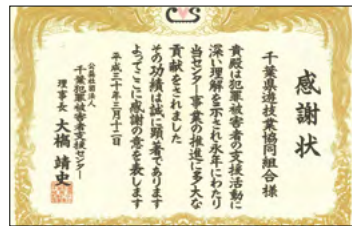 CVS
感謝状
千葉県遊技業協同組合様
貴殿は犯罪被害者の支援活動に
深い理解を示され永年にわたり
当センター事業の推進に多大な
貢献をされました
その功績は誠に顕著であります
よってここに感謝の意を表します
平成三十年三月十二日
公益社団法人
千葉犯罪被害者支援センター
理事長 大橋靖史